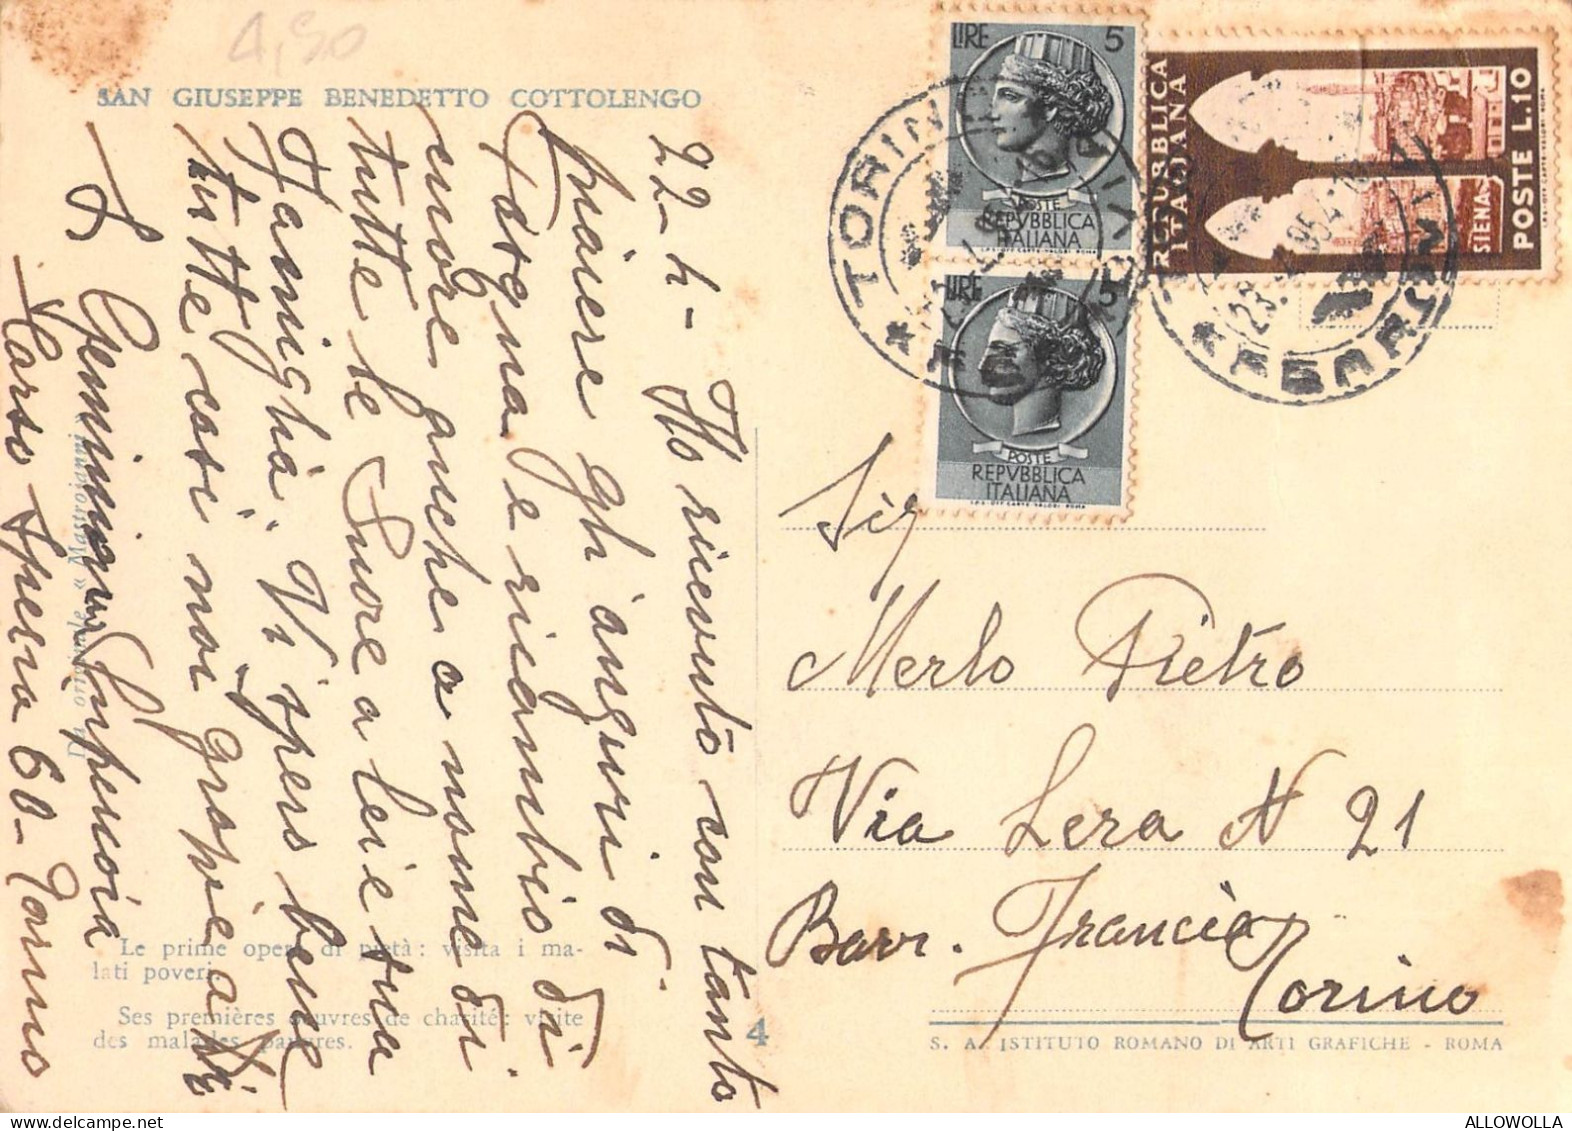 4,50
SAN GIUSEPPE BENEDETTO COTTOLENGO
22-4- Ho ricevuto con tanto
piacere gli auguri di
Pasqua e ricambio di
cuore anche a nome di
tutte le Suore a lei e sua
Famiglia. Vi spero bene
tutte così noi grazie a
S. Geminiana
Corso Spezia 60 - Torino
Da originale « Mastroianni »
Le prime opere di pietà: visita i ma-
lati poveri.
Ses premières oeuvres de charité: visite
des malades pauvres.
4
LIRE 5
POSTE
REPVBBLICA
ITALIANA
I.P.S. OFF. CARTE VALORI ROMA
LIRE 5
POSTE
REPVBBLICA
ITALIANA
I.P.S. OFF. CARTE VALORI ROMA
REPUBBLICA
ITALIANA
SIENA
POSTE L.10
I.P.S. OFF. CARTE VALORI ROMA
TORINO
Sig
Merlo Pietro
Via Lera N 21
Barr. Francia
Torino
S. A. ISTITUTO ROMANO DI ARTI GRAFICHE - ROMA
ALLOWOLLA